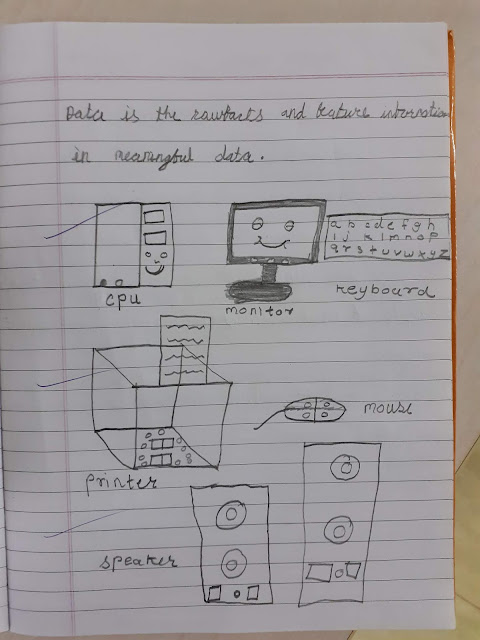 Data is the rawfacts and feature information
in meaningful data.
cpu
monitor
a b c d e f g h
i j k l m n o p
q r s t u v w x y z
keyboard
mouse
printer
speaker